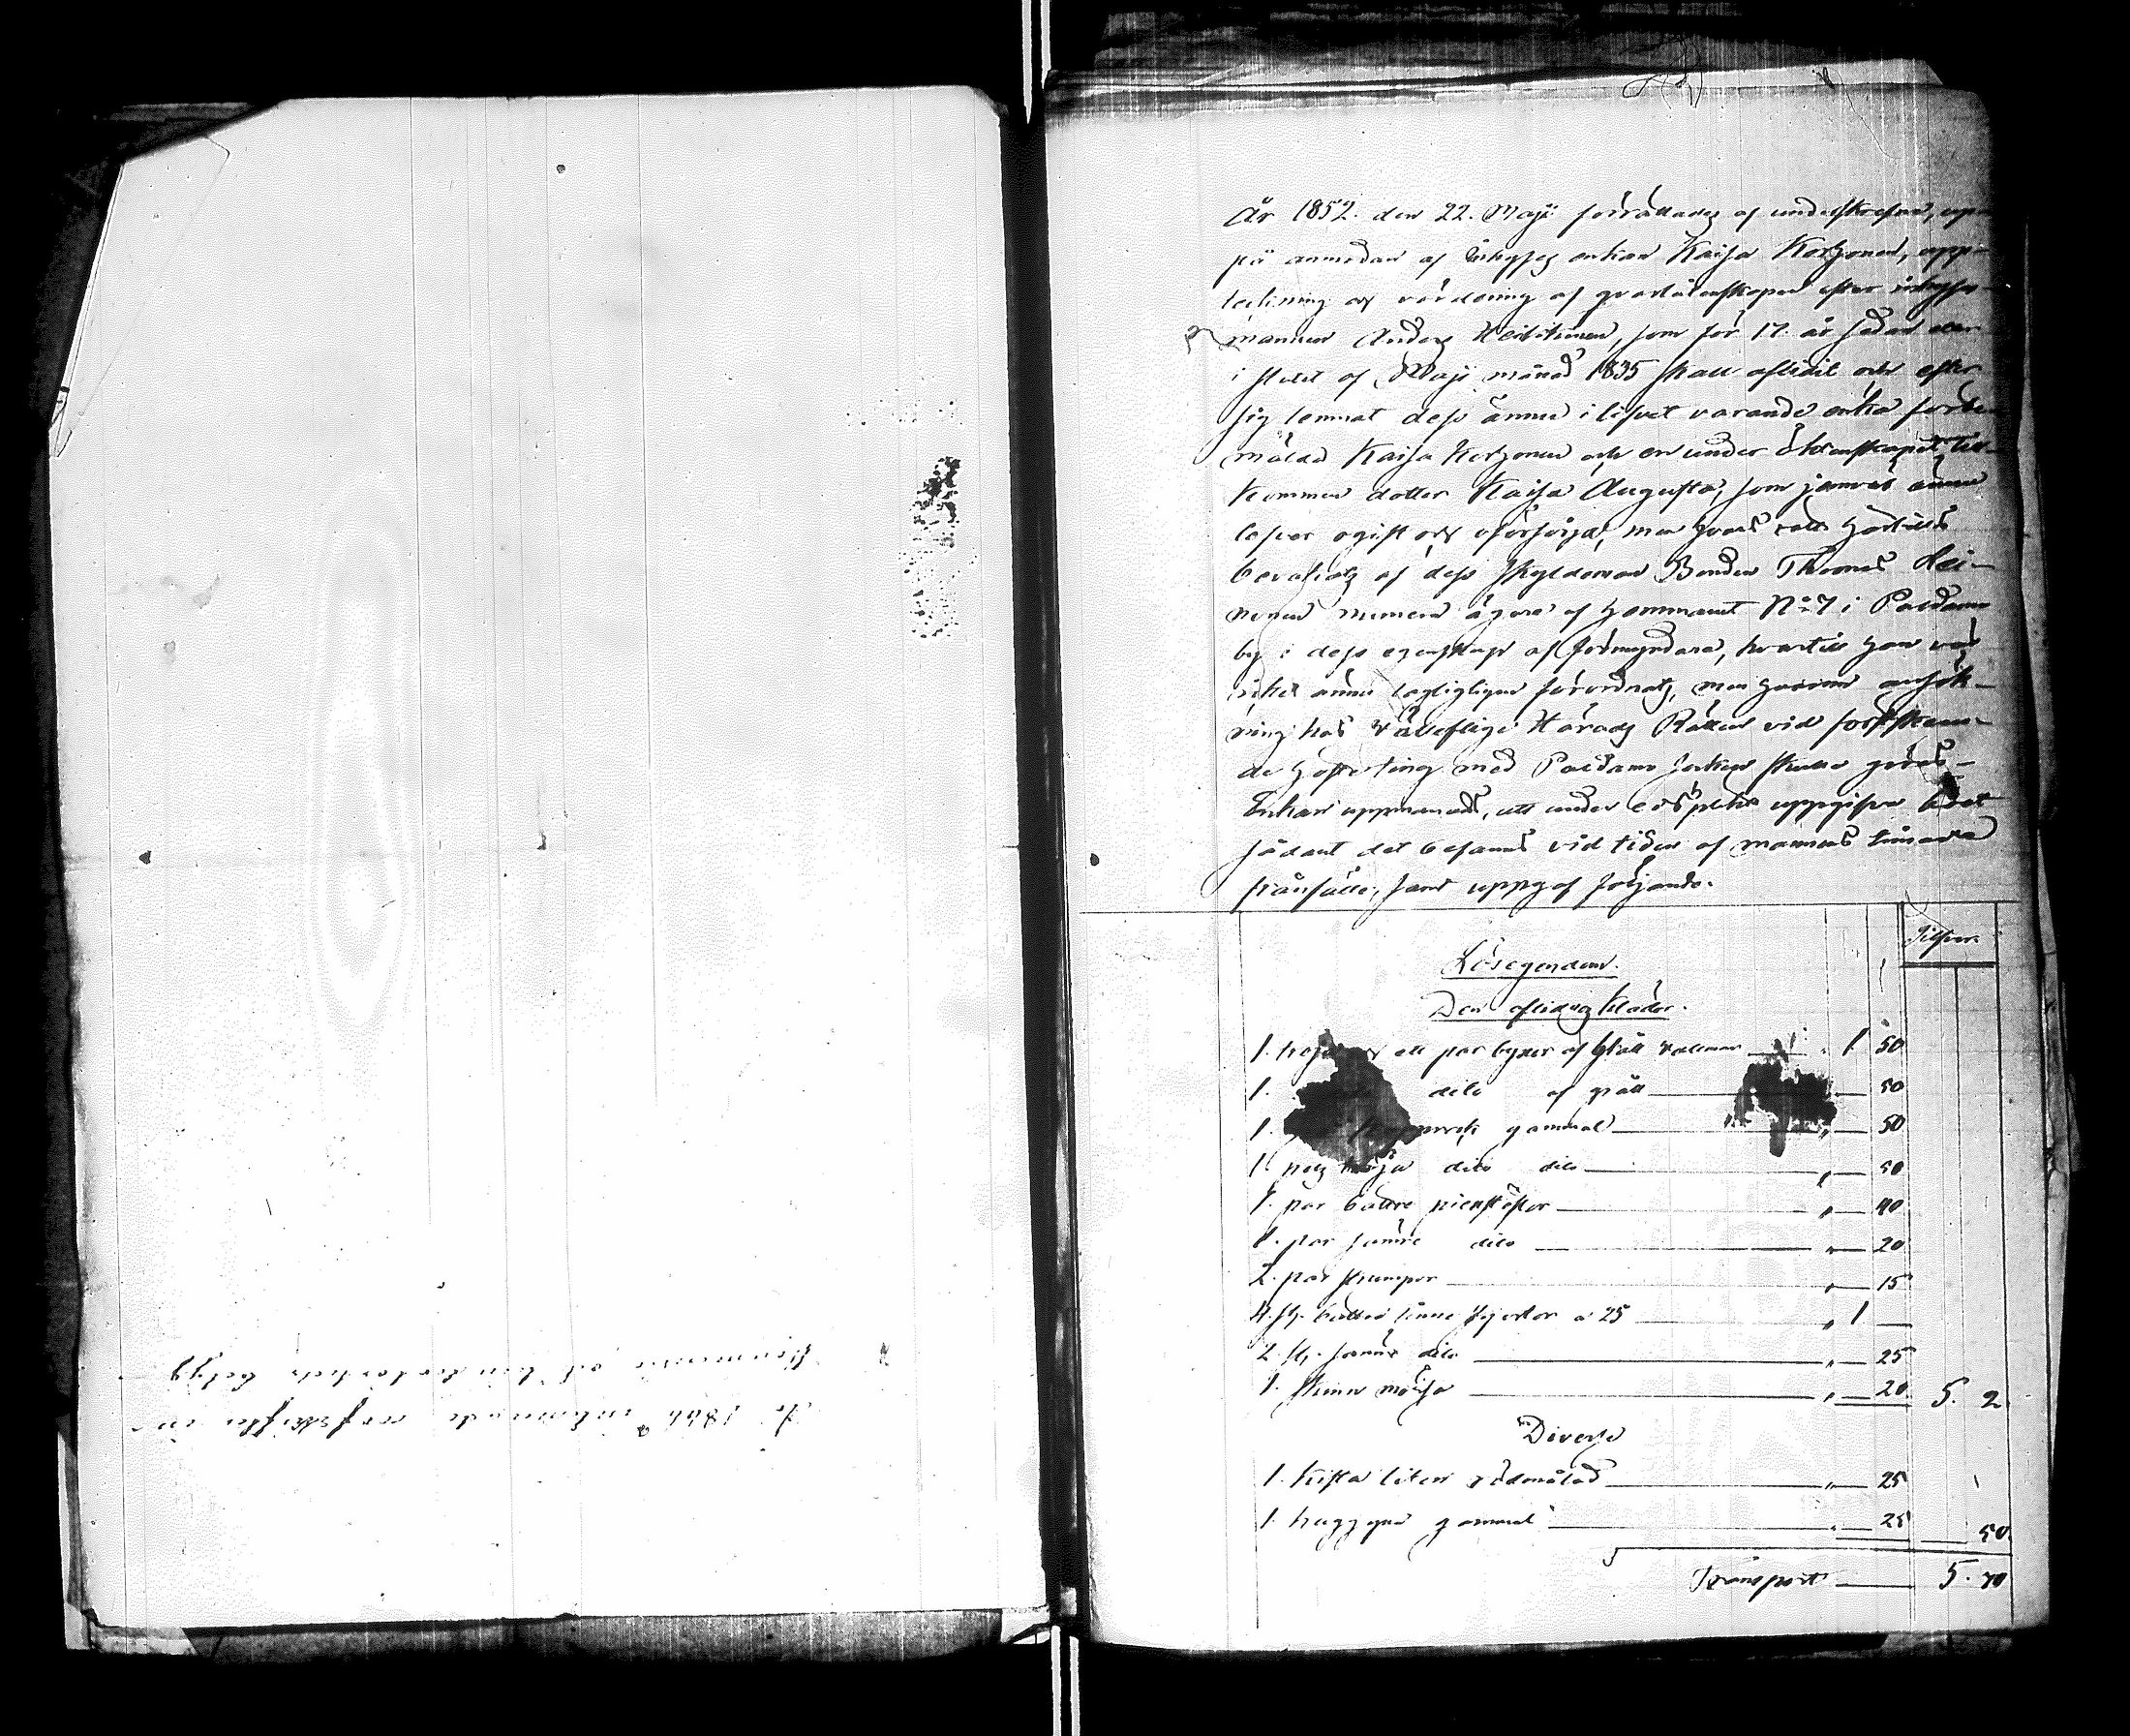 År 1852. den 22. Maji förrättades af undertskrefne, upp-
på anmodan af Inhyses enkan Kaisa Korhonen, upp-
teckning och värdering af qvarlåtenskapen efter inhyses-
mannen Anders Heiskinen, som för 17. år sedan eller
i slutet af Maji månad 1835 skall aflidit och efter
sig lemnat dess ännu i lifvet varande enka förbe-
mälad Kaisa Korhonen och en under ägtenskapet till-
kommen dotter Kaisa Augusta, som jemväl ännu
lefver ogift och oförsörjd, men hvars rätt härtills
bevakats af dess skyldeman Bonden Thomas Hei-
nonen numera ägare af hemmanet No 7 i Paldamo
by i dess egenskap af förmyndare, hvartill han väl
icke ännu lagligligen förordnats, men hvarom ansök-
ning hos Vällofliga Härads Rätten vid förestående-
de Höste ting med Paldamo Socken skulle göras -
Enkan uppmanades, att under edsplikt uppgifva boet
sådant det befanns vid tiden af mannens timade
frånfälle, samt uppgaf följande.
Silfver.
Lösegendom.
Den aflidnes kläder.
1. ett par byxor af blått vallmar 1. 50
1. dito af grått 50
1. gammal " 50
1. pels tröja dito dito " 50
1. par bättre piexstöflor " 40
1. par sämre dito " 20
2. par strumpor " 15
4. st. bättre linne skjortor à 25 " 1
2. st. sämre dito " 25
1. skinn mössa " 20 5. 2
Diverse
1. kista liten rödmålad " 25
1. huggyxa gammal " 25 50
Transport 5. 70
År 1844 inkommande